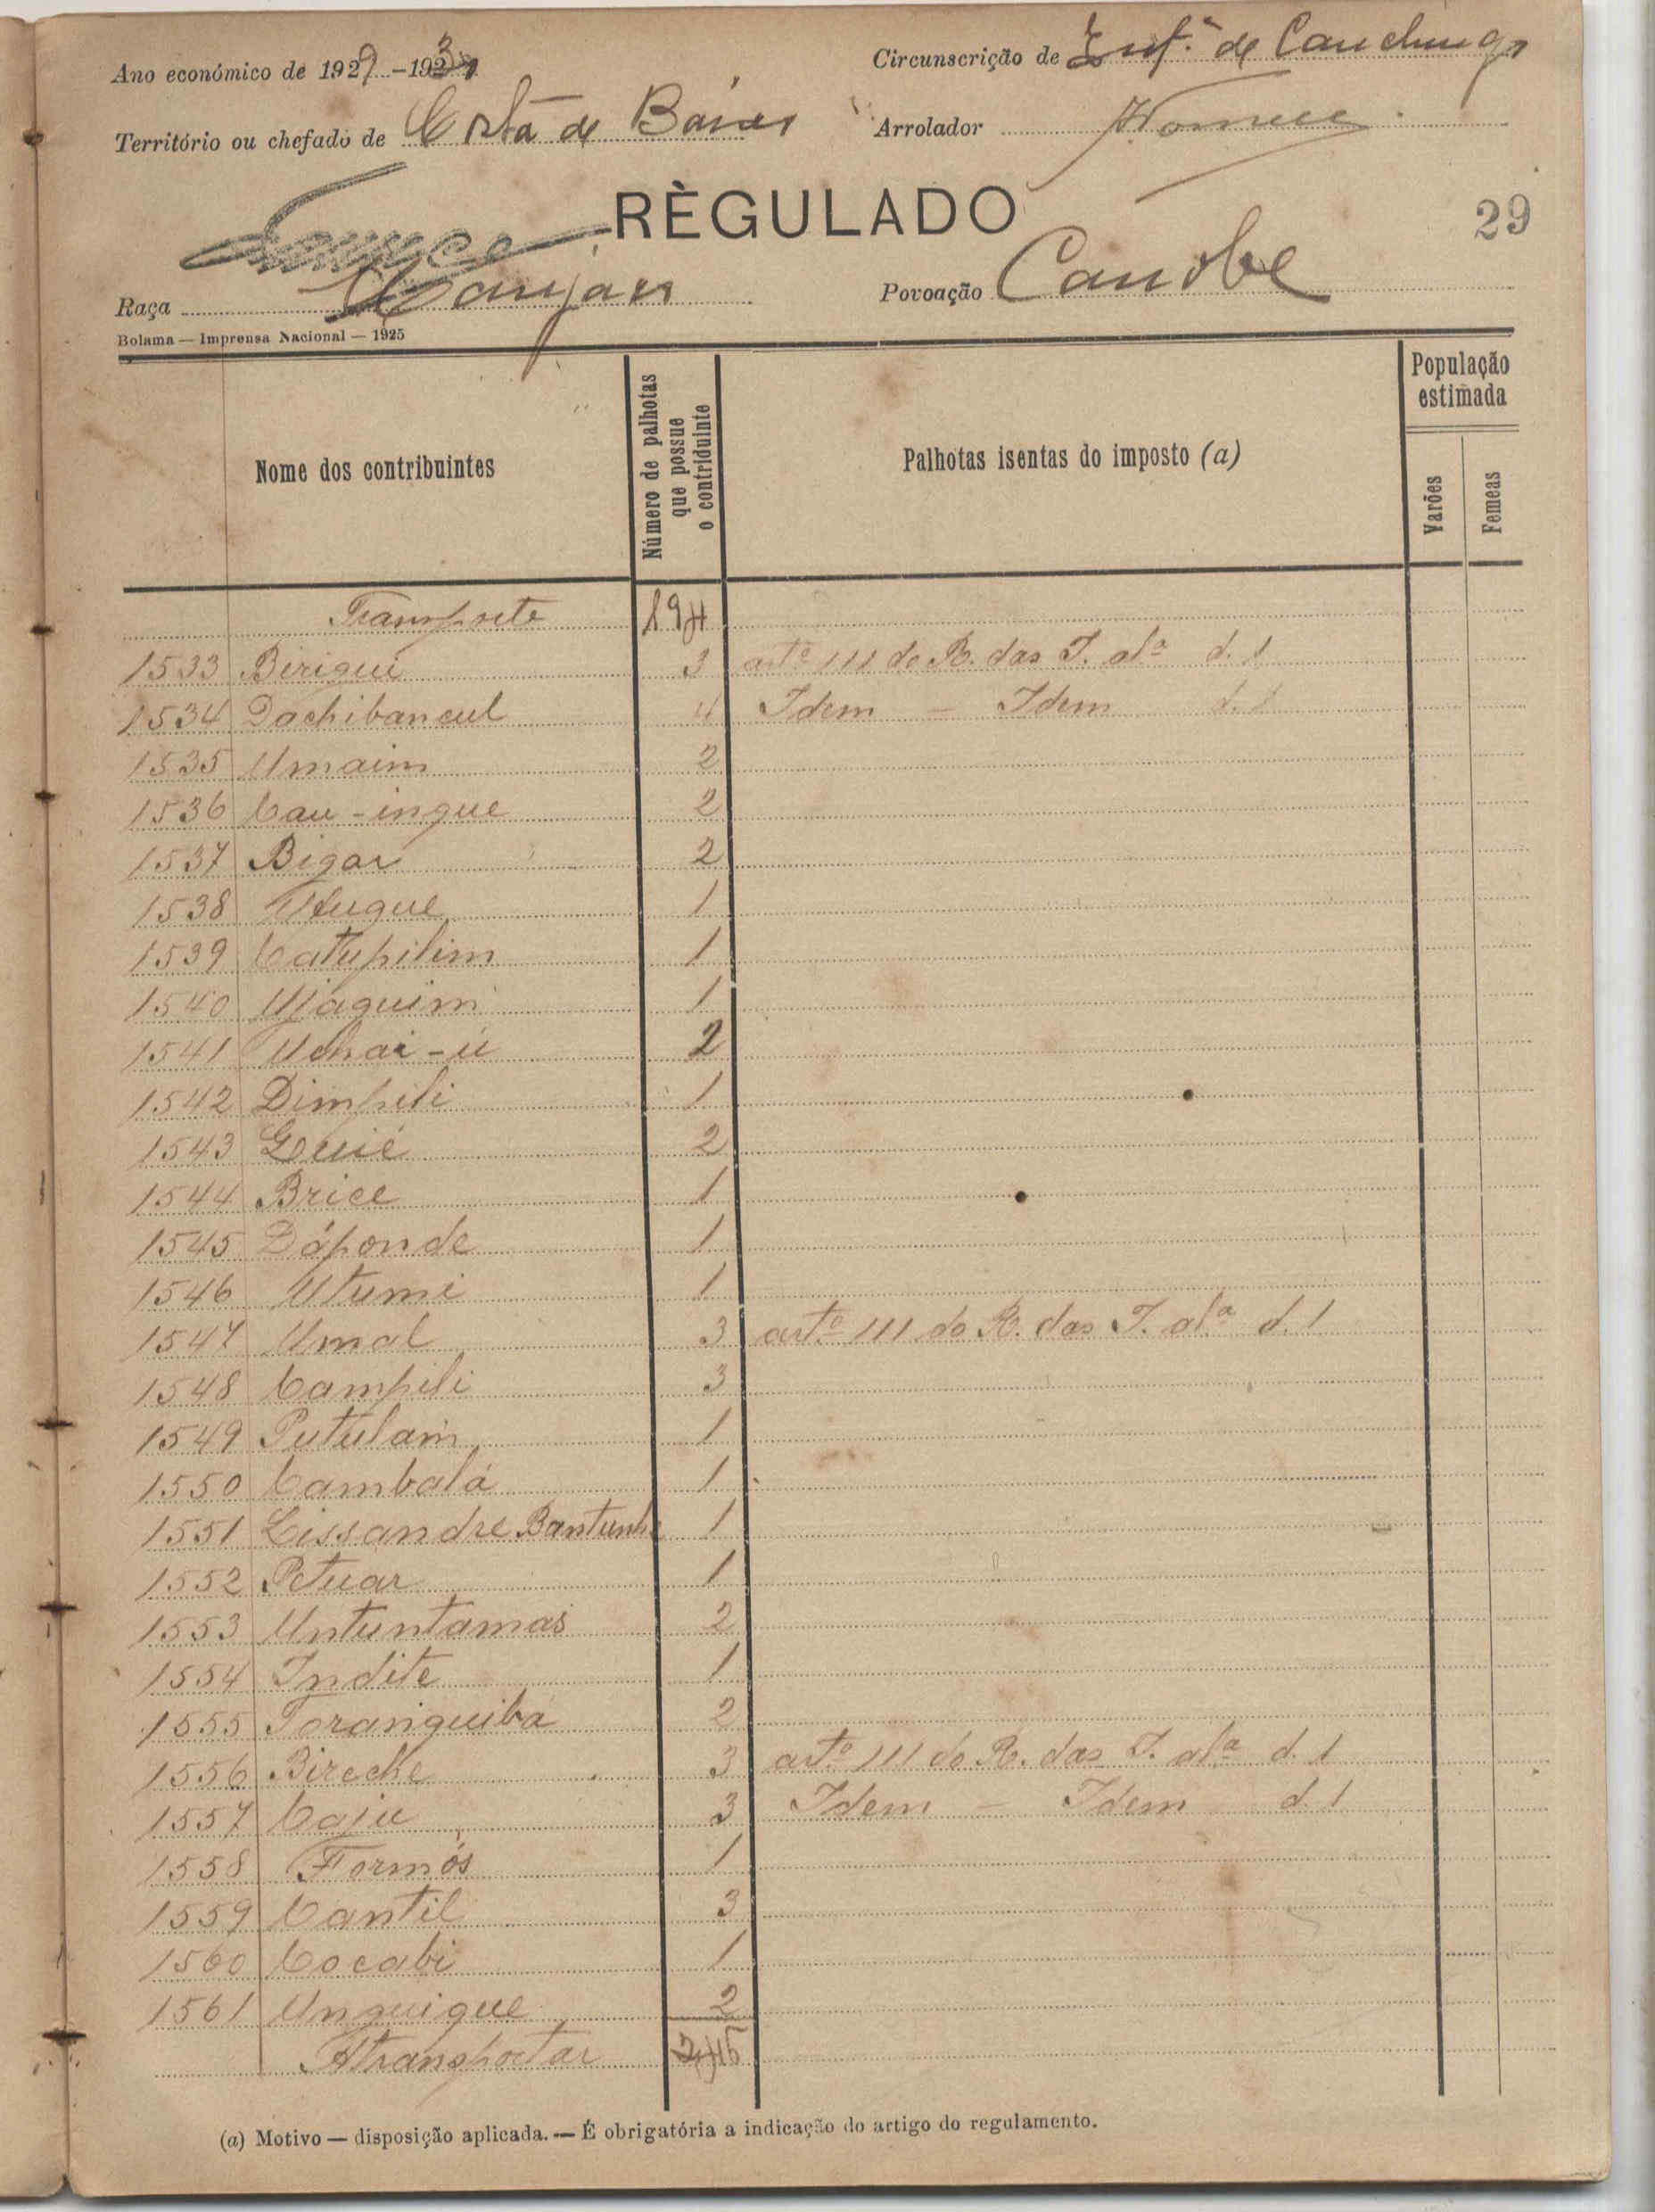 Ano económico de 1929 -193
Circunscrição de Inf.ª de Canchungo
Território ou chefado de Costa de Baixo
Arrolador
RÈGULADO
29
Raça Manjaca
Povoação Canobe
Bolama — Imprensa Nacional — 1925
Nome dos contribuintes
Número de palhotas
que possue
o contriduinte
Palhotas isentas do imposto (a)
População
estimada
Varões
Femeas
Transporte 194
1533 Birigui 3 artº 111 do R. das I. alª d. 1
1534 Dachibancul 4 Idem - Idem d. 1
1535 Umaim 2
1536 Cau-ingue 2
1537 Bigar 2
1538 Utugue 1
1539 Catupilim 1
1540 Ujaquim 1
1541 Uchai-ú 2
1542 Dimpili 1
1543 Guié 2
1544 Brice 1
1545 Dáponde 1
1546 Utumi 1
1547 Umal 3 artº 111 do R. das I. alª d. 1
1548 Campili 3
1549 Putulam 1
1550 Cambalá 1
1551 Lissandre Bantunhe 1
1552 Petuar 1
1553 Untuntamas 2
1554 Indite 1
1555 Toranguiba 2
1556 Bireche 3 artº 111 do R. das I. alª d. 1
1557 Caju 3 Idem - Idem d. 1
1558 Formós 1
1559 Cantil 3
1560 Cocabi 1
1561 Unguigue 2
A transportar 245
(a) Motivo — disposição aplicada. — É obrigatória a indicação do artigo do regulamento.